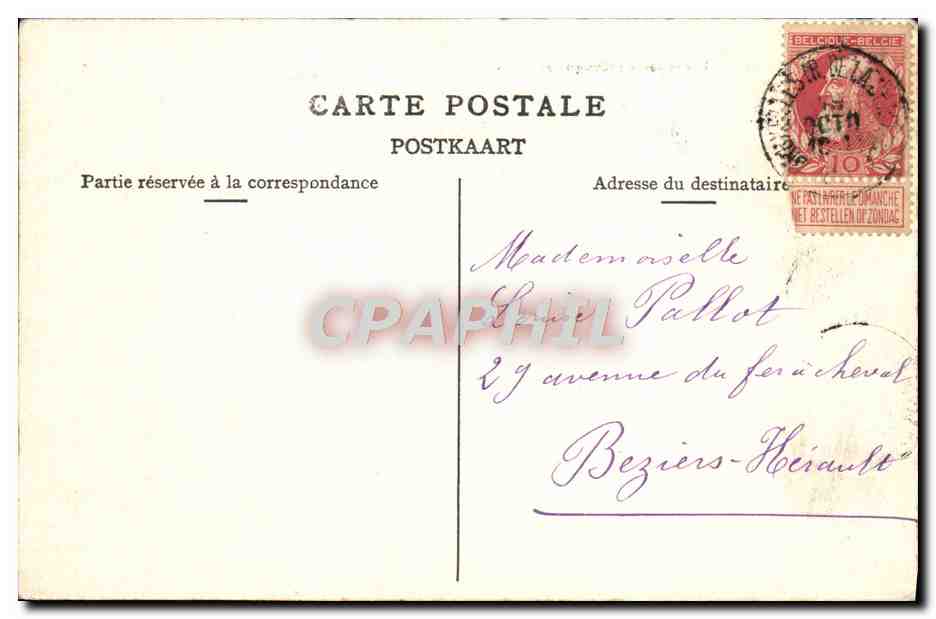 BELGIQUE-BELGIE
10
NE PAS LIVRER LE DIMANCHE
NIET BESTELLEN OP ZONDAG
CARTE POSTALE
POSTKAART
Partie réservée à la correspondance
Adresse du destinataire
Mademoiselle
Louise Pallot
29 avenue du fer à cheval
Beziers-Hérault
CPAPHIL